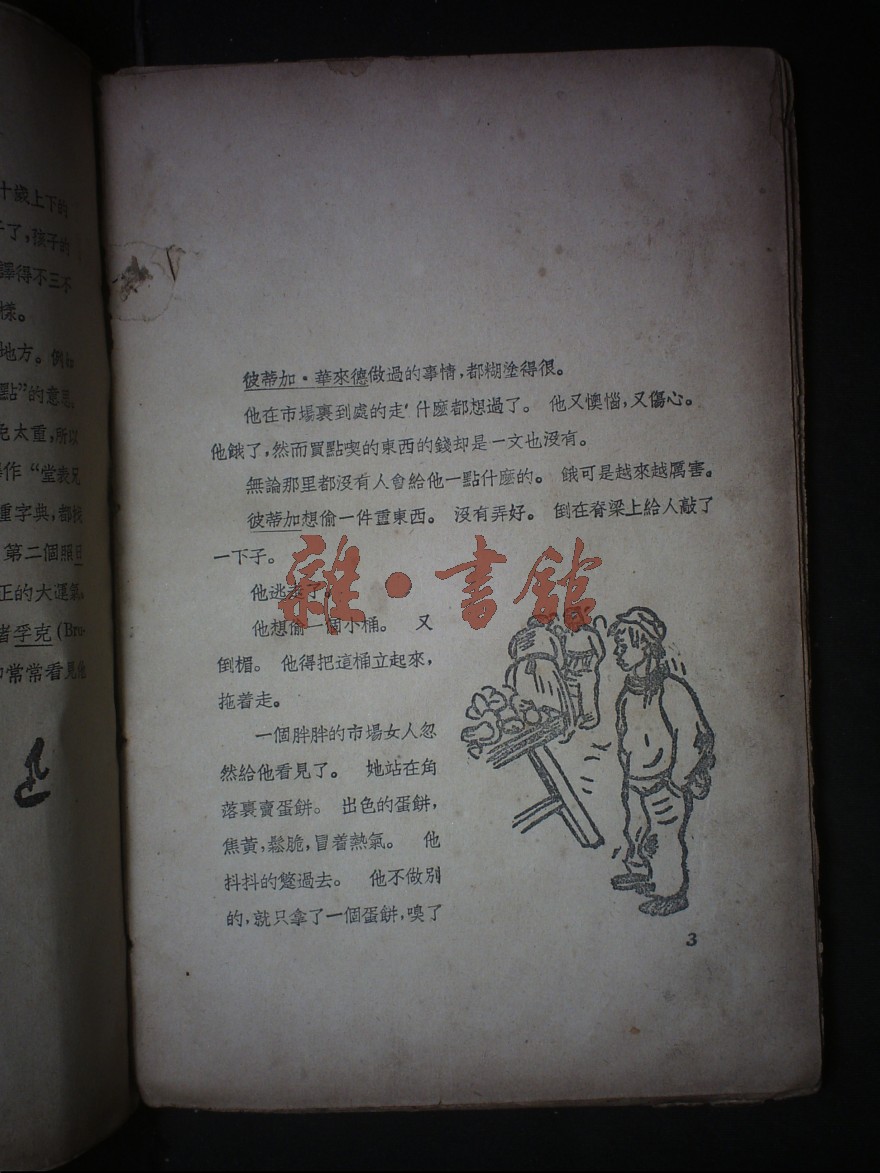 十歲上下的
了，孩子的
譯得不三不
樣。
地方。例如
點”的意思，
太重，所以
作“堂表兄
重字典，都
第二個照日
正的大運氣，
者孚克(Bru-
常常看見他
迅
彼蒂加·華來德做過的事情，都糊塗得很。
他在市場裏到處的走，什麼都想過了。 他又懊惱，又傷心。
他餓了，然而買點喫的東西的錢却是一文也沒有。
無論那里都沒有人會給他一點什麼的。 餓可是越來越厲害。
彼蒂加想偷一件重東西。 沒有弄好。 倒在脊梁上給人敲了
一下子。
他逃走了。
他想偷一個小桶。 又
倒楣。 他得把這桶立起來，
拖着走。
一個胖胖的市場女人忽
然給他看見了。 她站在角
落裏賣蛋餅。 出色的蛋餅，
焦黄，鬆脆，冒着熱氣。 他
抖抖的蹩過去。 他不做別
的，就只拿了一個蛋餅，嗅了
3
雜·書館